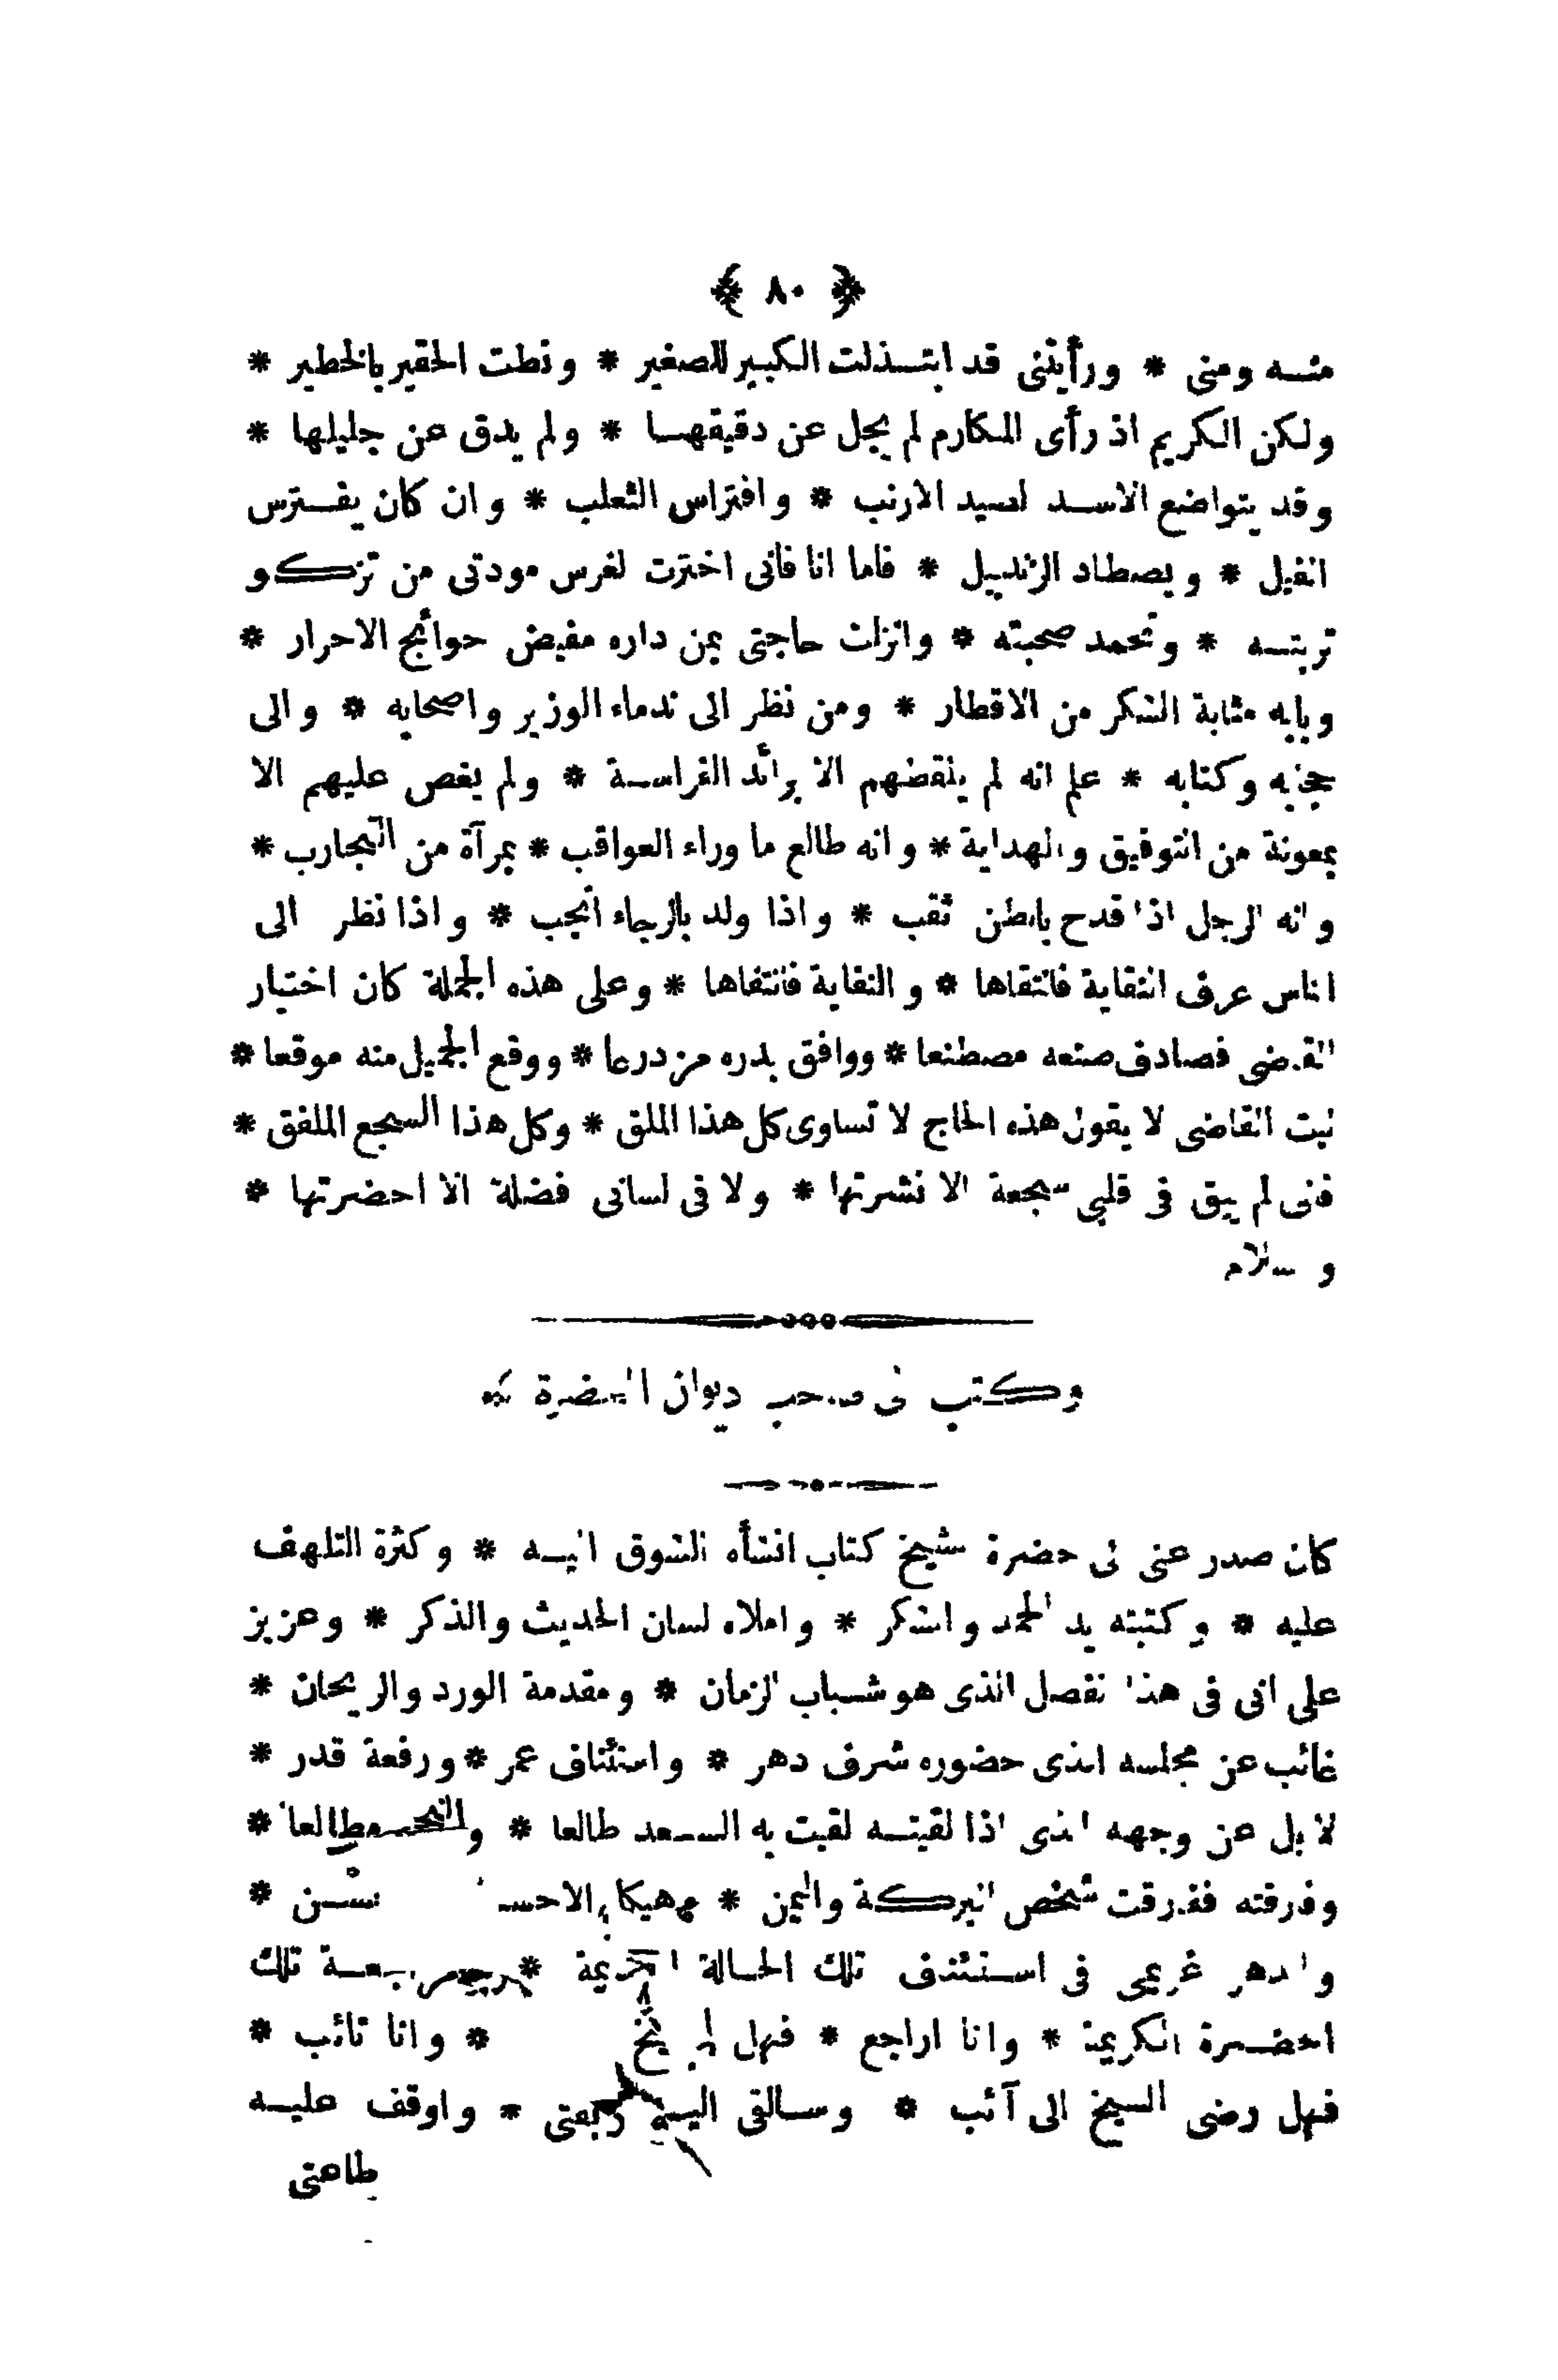 ﴿ ٨٠ ﴾
منه ومنى * ورأيتنى قد ابتذلت الكبير للصغير * ونطت الحقير بالخطير *
ولكن الكريم اذ رأى المكارم لم يجل عن دقيقها * ولم يدق عن جليلها *
وقد يتواضع الاسد لصيد الارنب * وافتراس الثعلب * وان كان يفترس
الفيل * ويصطاد الزندبيل * فاما انا فانى اخترت لغرس مودتى من تزكو
تربته * وتحمد صحبته * وانزلت حاجتى بمن داره مفيض حوائج الاحرار *
وبابه مثابة الشكر من الاقطار * ومن نظر الى ندماء الوزير واصحابه * والى
حجابه وكتابه * علم انه لم يلتقطهم الا برائد الفراسة * ولم يغص عليهم الا
بمعونة من التوفيق والهداية * وانه طالع ما وراء العواقب * بمرآة من التجارب *
وانه الرجل اذا قدح بالظن ثقب * واذا ولد بالرجاء أنجب * واذا نظر الى
الناس عرف النقاية فانتقاها * والنفاية فانتفاها * وعلى هذه الجملة كان اختيار
القاضى فصادف صنعه مصطنعا * ووافق بذره مزدرعا * ووقع الجميل منه موقعا *
ليت القاضى لا يقول هذه الحاج لا تساوى كل هذا الملق * وكل هذا السجع الملفق *
فانى لم يبق فى قلبى سجعة الا نشرتها * ولا فى لسانى فضلة الا احضرتها *
والسلام
وكتب الى صاحب ديوان الحضرة
كان صدر عنى الى حضرة الشيخ كتاب انشأه الشوق اليه * وكثرة التلهف
عليه * وكتبته يد الحمد والشكر * واملاه لسان الحديث والذكر * وعزيز
على انى فى هذا الفصل الذى هو شباب الزمان * ومقدمة الورد والريحان *
غائب عن مجلسه الذى حضوره شرف دهر * واستئناف عمر * ورفعة قدر *
لا بل عن وجهه الذى اذا لقيته لقيت به السعد طالعا * والنجم طالعا *
وفارقته ففارقت شخص البركة واليمن *
والدهر غريمى فى استئناف تلك الحالة القديمة * تلك
الحضرة الكريمة * وانا اراجع * فهل * وانا تائب *
فهل رضى الشيخ الى آئب * وسالقى اليه ربقتى * واوقف عليه
طاعتى